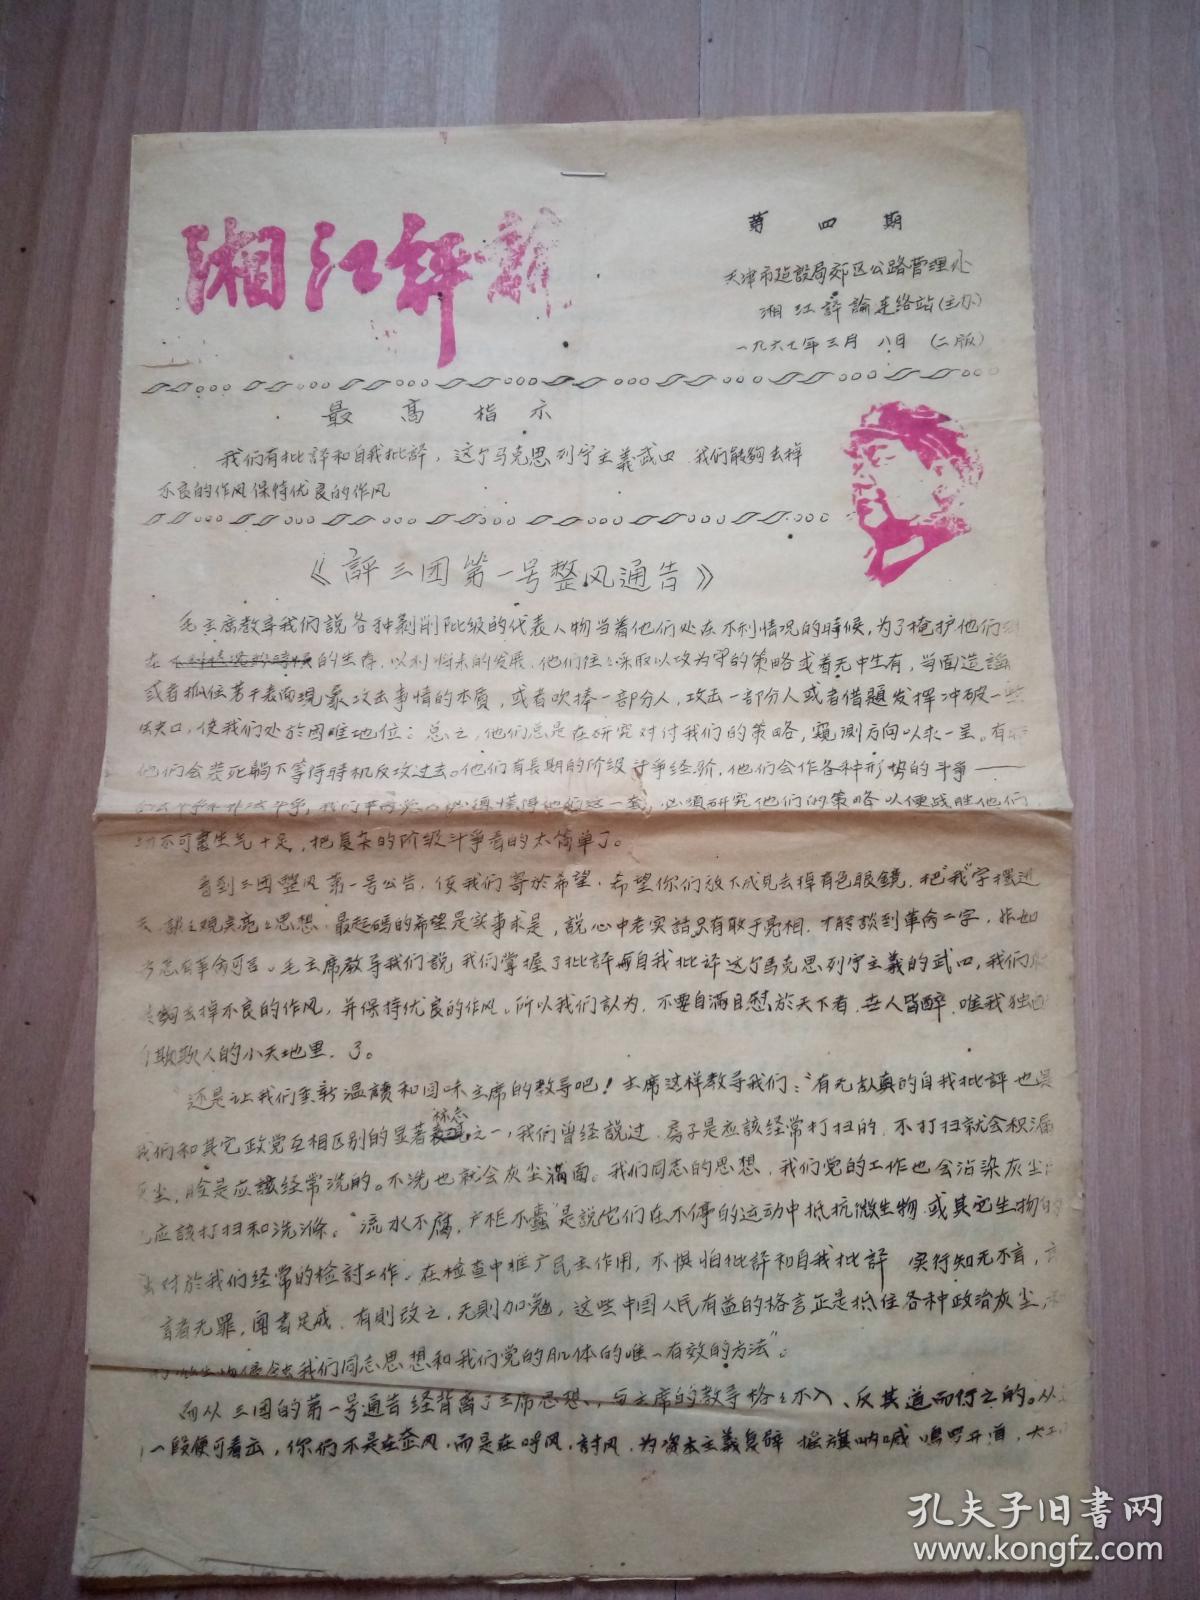 湘江評論
第四期
天津市建設局郊区公路管理处
湘江評論連絡站(主办)
一九六七年三月八日(二版)
最高指示
我们有批評和自我批評,这个马克思列宁主義武口.我们能夠去掉
不良的作风保持优良的作风
《評三团第一号整风通告》
毛主席教导我们說各种剝削阶级的代表人物当着他们处在不利情况的時候,为了掩护他们
在的生存,以利将来的发展,他们往々采取以攻为守的策略或者无中生有,当面造謠
或者抓住若干表面現象攻击事情的本质,或者吹捧一部分人,攻击一部分人或者借題发揮冲破一些
缺口,使我们处於困难地位;总之,他们总是在研究对付我们的策略,窺測方向以求一呈。有時
他们会装死躺下等待時机反攻过去。他们有長期的阶级斗争经验,他们会作各种形势的斗争——
必須懂得他们这一套,必須研究他们的策略以便战胜他们
切不可書生气十足,把复杂的阶级斗争看的太简单了。
看到三团整风第一号公告,使我们寄於希望.希望你们放下成見去掉有色眼鏡.把"我"字摆进
去.最起碼的希望是实事求是,說心中老实話只有敢于亮相.才能談到革命二字,
革命可言。毛主席教导我们說我们掌握了批評和自我批评这个馬克思列宁主義的武口,我们
能夠去掉不良的作风,并保持优良的作风。所以我们認为.不要自滿自慰於天下者,世人皆醉.唯我独
欺人的小天地里.了。
还是让我们重新温讀和回味主席的教导吧!主席这样教导我们:"有无認真的自我批評也是
我们和其它政党互相区别的显著标志之一,我们曾经説过.房子是应該经常打扫的.不打扫就会积满
灰尘,脸是应該经常洗的。不洗也就会灰尘滿面。我们同志的思想.我们党的工作也会沾染灰尘
也应該打扫和洗滌。"流水不腐,户枢不蠹"是說它们在不停的运动中抵抗微生物或其它生物的
对於我们经常的检討工作.在检查中推广民主作用,不惧怕批評和自我批評 实行知无不言,言
言者无罪,闻者足戒.有則改之,无則加勉,这些中国人民有益的格言正是抵住各种政治灰尘,
我们同志思想和我们党的肌体的唯一有效的方法"。
而从三团的第一号通告经背离了主席思想,与主席的教导格々不入、反其道而行之的。从
一段便可看出,你们不是在整风.而是在呼风.討风.为资本主義复辟 摇旗呐喊 鳴罗开道,大
孔夫子旧書网
www.kongfz.com